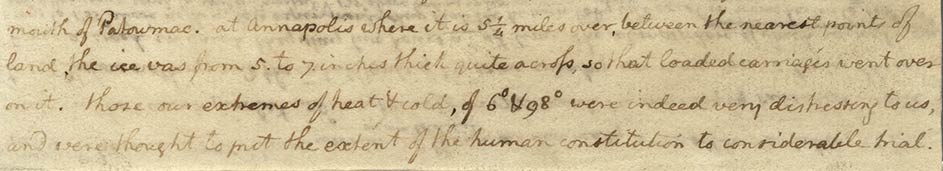 mouth of Patowmac. at Annapolis where it is 5¼ miles over, between the nearest points of
land, the ice was from 5. to 7 inches thick quite across, so that loaded carriages went over
on it. those our extremes of heat & cold, of 6° & 98° were indeed very distressing to us,
and were thought to put the extent of the human constitution to considerable trial.